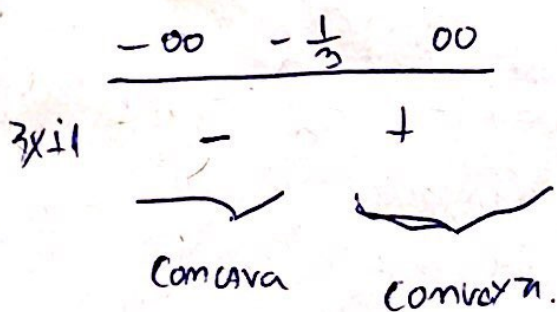 -∞ -1/3 ∞
3x+1 - +
Concava convexa.